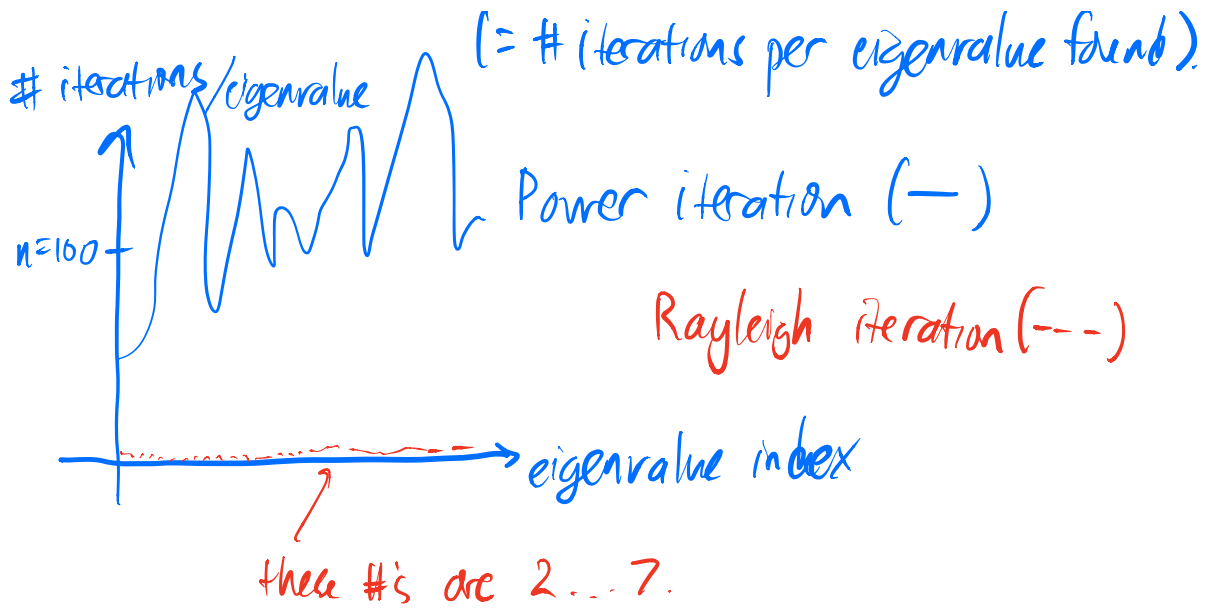 (= # iterations per eigenvalue found).
# iterations/eigenvalue
n=100
Power iteration (—)
Rayleigh iteration (---)
eigenvalue index
these #'s are 2...7.